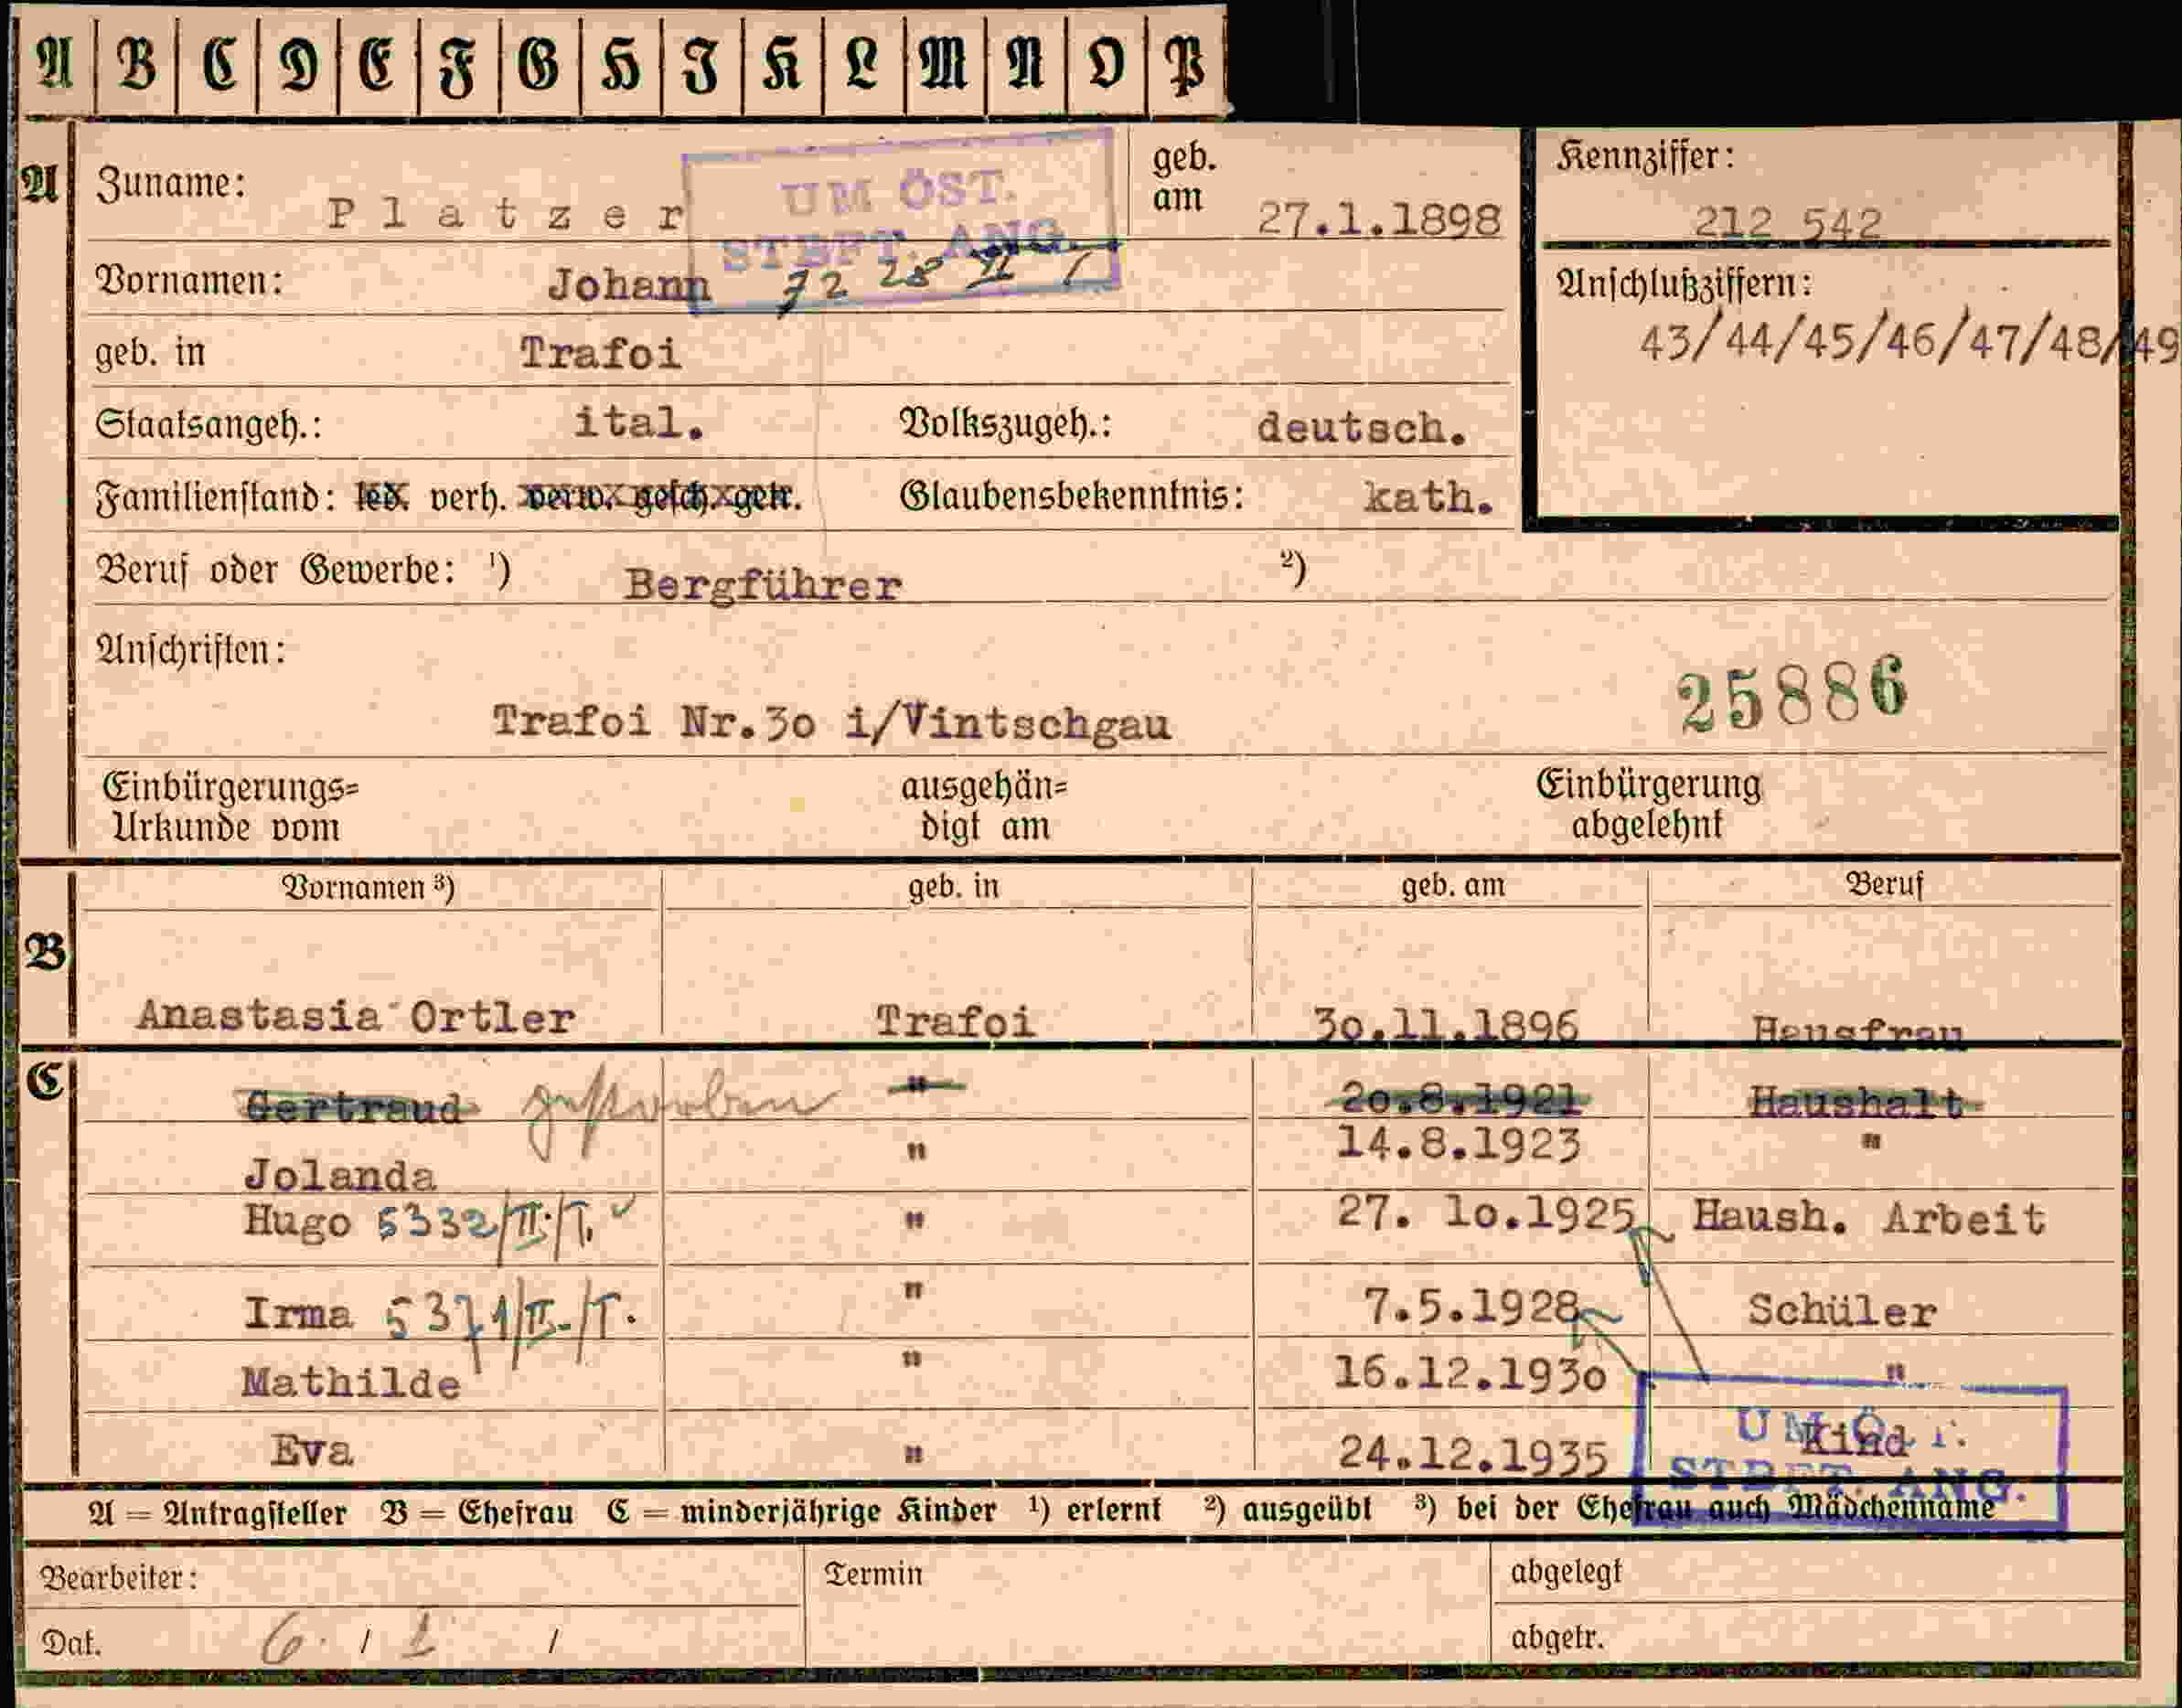 A B C D E F G H I K L M N O P
A Zuname: Platzer geb. am 27.1.1898
UM ÖST.
STBFT. ANG.
Kennziffer: 212 542
Vornamen: Johann 72 28 II
Anschlußziffern:
43/44/45/46/47/48/49
geb. in Trafoi
Staatsangeh.: ital. Volkszugeh.: deutsch.
Familienstand: led. verh. verw. gesch. getr. Glaubensbekenntnis: kath.
Beruf oder Gewerbe: ¹) Bergführer ²)
Anschriften:
25886
Trafoi Nr.3o i/Vintschgau
Einbürgerungs=
Urkunde vom
ausgehän=
digt am
Einbürgerung
abgelehnt
Vornamen ³) geb. in geb. am Beruf
B
Anastasia Ortler Trafoi 3o.11.1896 Hausfrau
C
Gertraud gestorben " 2o.8.1921 Haushalt
Jolanda " 14.8.1923 "
Hugo 5332/II./T. " 27. 1o.1925 Haush. Arbeit
Irma 5371/II./T. " 7.5.1928 Schüler
Mathilde " 16.12.193o "
Eva " 24.12.1935 Kind
UM ÖST.
STBFT. ANG.
A = Antragsteller B = Ehefrau C = minderjährige Kinder ¹) erlernt ²) ausgeübt ³) bei der Ehefrau auch Mädchenname
Bearbeiter: Termin abgelegt
Dat. 6. / 1 / abgetr.